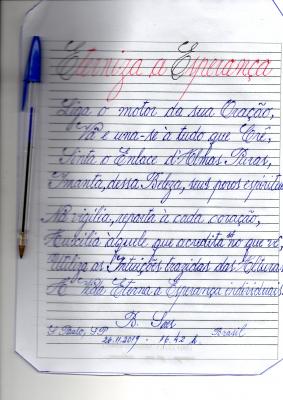 Eterniza a Esperança
Liga o motor da sua Oração,
Vá e una-se à tudo que Crê,
Sinta o Enlace d'Almas Puras,
Imanta, dessa Beleza, seus poros espirituais
Na vigília, reposta à cada coração,
Auxilia àquele que acredita no que vê,
Utiliza as Intuições trazidas das Alturas
Eterna a Esperança individuais
B. Soes
S. Paulo, SP Brasil
26.11.2019 - 16.42 h.